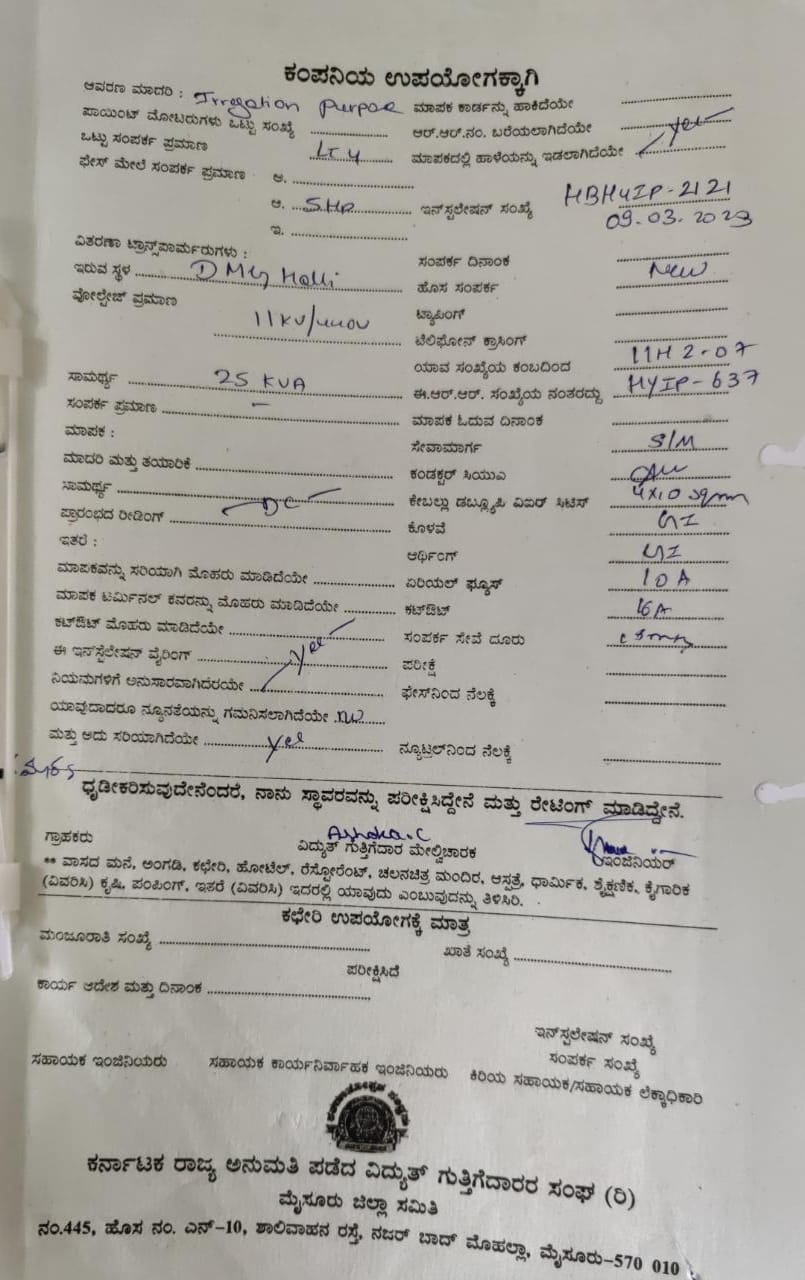 ಕಂಪನಿಯ ಉಪಯೋಗಕ್ಕಾಗಿ
ಆವರಣ ಮಾದರಿ : Irregation Purpose ಮಾಪಕ ಕಾರ್ಡನ್ನು ಹಾಕಿದೆಯೇ
ಪಾಯಿಂಟ್ ಮೋಟರುಗಳು ಒಟ್ಟು ಸಂಖ್ಯೆ ಆರ್.ಆರ್.ನಂ. ಬರೆಯಲಾಗಿದೆಯೇ
ಒಟ್ಟು ಸಂಪರ್ಕ ಪ್ರಮಾಣ LT 4 ಮಾಪಕದಲ್ಲಿ ಹಾಳೆಯನ್ನು ಇಡಲಾಗಿದೆಯೇ yes
ಫೇಸ್ ಮೇಲೆ ಸಂಪರ್ಕ ಪ್ರಮಾಣ ಅ.
ಆ. 5 HP ಇನ್‌ಸ್ಟಲೇಷನ್ ಸಂಖ್ಯೆ HBHYIP-2121
ಇ. 09-03-2023
ವಿತರಣಾ ಟ್ರಾನ್ಸ್‌ಪಾರ್ಮರುಗಳು : ಸಂಪರ್ಕ ದಿನಾಂಕ
ಇರುವ ಸ್ಥಳ Halli ಹೊಸ ಸಂಪರ್ಕ New
ವೋಲ್ಟೇಜ್ ಪ್ರಮಾಣ 11KV/440V ಟ್ಯಾಪಿಂಗ್
ಟೆಲಿಫೋನ್ ಕ್ರಾಸಿಂಗ್
ಯಾವ ಸಂಖ್ಯೆಯ ಕಂಬದಿಂದ 11H 2-07
ಸಾಮರ್ಥ್ಯ 25 KVA ಈ.ಆರ್.ಆರ್. ಸಂಖ್ಯೆಯ ನಂತರದ್ದು HYIP-637
ಸಂಪರ್ಕ ಪ್ರಮಾಣ – ಮಾಪಕ ಓದುವ ದಿನಾಂಕ
ಮಾಪಕ : ಸೇವಾಮಾರ್ಗ S/M
ಮಾದರಿ ಮತ್ತು ತಯಾರಿಕೆ ಕಂಡಕ್ಟರ್ ಸಿಯುಎ
ಸಾಮರ್ಥ್ಯ DC ಕೇಬಲ್ಲು ಡಬ್ಲ್ಯೂಪಿ ವಿಐರ್ ಸಿಟಿಸ್ 4x10 sqmm
ಪ್ರಾರಂಭದ ರೀಡಿಂಗ್ ಕೊಳವೆ GI
ಇತರೆ : ಆರ್ಥಿಂಗ್ GI
ಮಾಪಕವನ್ನು ಸರಿಯಾಗಿ ಮೊಹರು ಮಾಡಿದೆಯೇ ಏರಿಯಲ್ ಫ್ಯೂಸ್ 10 A
ಮಾಪಕ ಟರ್ಮಿನಲ್ ಕವರನ್ನು ಮೊಹರು ಮಾಡಿದೆಯೇ ಕಟ್‌ಔಟ್ 16A
ಕಟ್‌ಔಟ್ ಮೊಹರು ಮಾಡಿದೆಯೇ ಸಂಪರ್ಕ ಸೇವೆ ದೂರು
ಈ ಇನ್‌ಸ್ಟಲೇಷನ್ ವೈರಿಂಗ್ yes ಪರೀಕ್ಷೆ
ನಿಯಮಗಳಿಗೆ ಅನುಸಾರವಾಗಿದೆರಯೇ ಫೇಸ್‌ನಿಂದ ನೆಲಕ್ಕೆ
ಯಾವುದಾದರೂ ನ್ಯೂನತೆಯನ್ನು ಗಮನಿಸಲಾಗಿದೆಯೇ no
ಮತ್ತು ಅದು ಸರಿಯಾಗಿದೆಯೇ yes ನ್ಯೂಟ್ರಲ್‌ನಿಂದ ನೆಲಕ್ಕೆ
ಧೃಡೀಕರಿಸುವುದೇನೆಂದರೆ, ನಾನು ಸ್ಥಾವರವನ್ನು ಪರೀಕ್ಷಿಸಿದ್ದೇನೆ ಮತ್ತು ರೇಟಿಂಗ್ ಮಾಡಿದ್ದೇನೆ.
Ashoka.C
ಗ್ರಾಹಕರು ವಿದ್ಯುತ್ ಗುತ್ತಿಗೆದಾರ ಮೇಲ್ವಿಚಾರಕ ಇಂಜಿನಿಯರ್
** ವಾಸದ ಮನೆ, ಅಂಗಡಿ, ಕಛೇರಿ, ಹೋಟೆಲ್, ರೆಸ್ಟೋರೆಂಟ್, ಚಲನಚಿತ್ರ ಮಂದಿರ, ಆಸ್ಪತ್ರೆ, ಧಾರ್ಮಿಕ, ಶೈಕ್ಷಣಿಕ, ಕೈಗಾರಿಕ
(ವಿವರಿಸಿ) ಕೃಷಿ, ಪಂಪಿಂಗ್, ಇತರೆ (ವಿವರಿಸಿ) ಇದರಲ್ಲಿ ಯಾವುದು ಎಂಬುವುದನ್ನು ತಿಳಿಸಿರಿ.
ಕಛೇರಿ ಉಪಯೋಗಕ್ಕೆ ಮಾತ್ರ
ಮಂಜೂರಾತಿ ಸಂಖ್ಯೆ ಖಾತೆ ಸಂಖ್ಯೆ
ಪರೀಕ್ಷಿಸಿದೆ
ಕಾರ್ಯ ಆದೇಶ ಮತ್ತು ದಿನಾಂಕ
ಇನ್‌ಸ್ಪಲೇಷನ್ ಸಂಖ್ಯೆ
ಸಂಪರ್ಕ ಸಂಖ್ಯೆ
ಸಹಾಯಕ ಇಂಜಿನಿಯರು ಸಹಾಯಕ ಕಾರ್ಯನಿರ್ವಾಹಕ ಇಂಜಿನಿಯರು ಕಿರಿಯ ಸಹಾಯಕ/ಸಹಾಯಕ ಲೆಕ್ಕಾಧಿಕಾರಿ
ಕರ್ನಾಟಕ ರಾಜ್ಯ ಅನುಮತಿ ಪಡೆದ ವಿದ್ಯುತ್ ಗುತ್ತಿಗೆದಾರರ ಸಂಘ (ರಿ)
ಮೈಸೂರು ಜಿಲ್ಲಾ ಸಮಿತಿ
ನಂ.445, ಹೊಸ ನಂ. ಎನ್-10, ಶಾಲಿವಾಹನ ರಸ್ತೆ, ನಜರ್ ಬಾದ್ ಮೊಹಲ್ಲಾ, ಮೈಸೂರು-570 010